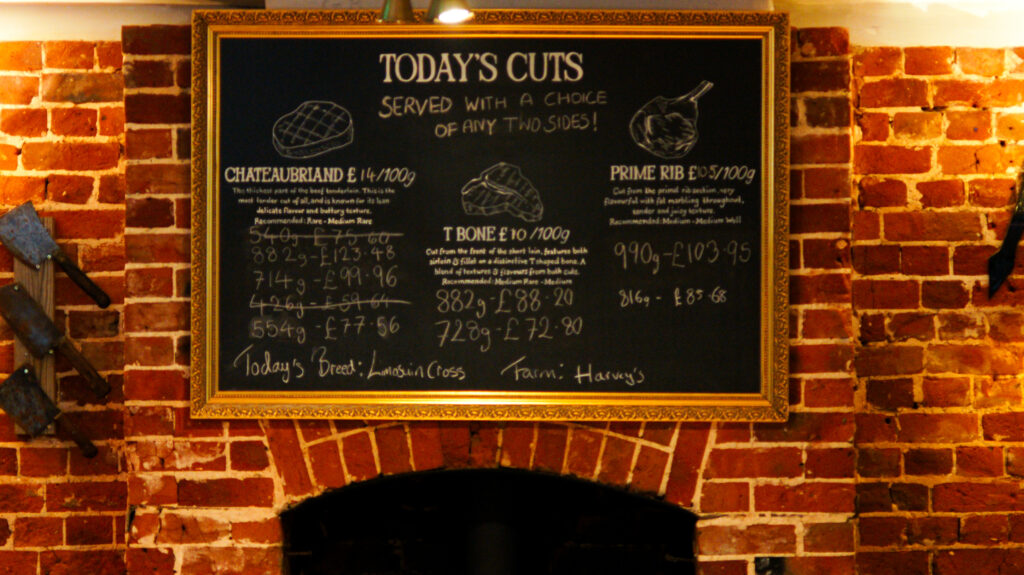 TODAY'S CUTS
SERVED WITH A CHOICE
OF ANY TWO SIDES!
CHATEAUBRIAND £ 14/100g
The thickest part of the beef tenderloin. This is the
most tender cut of all, and is known for its lean
delicate flavour and buttery texture.
Recommended: Rare - Medium Rare
540g - £75·60
882g - £123·48
714g - £99·96
426g - £59·64
554g - £77·56
T BONE £ 10 /100g
Cut from the front of the short loin, features both
sirloin & fillet on a distinctive T shaped bone. A
blend of textures & flavours from both cuts.
Recommended: Medium Rare - Medium
882g - £88·20
728g - £72·80
PRIME RIB £10.5/100g
Cut from the primal rib section, very
flavourful with fat marbling throughout,
tender and juicy texture.
Recommended: Medium - Medium Well
990g - £103·95
816g - £85·68
Today's Breed: Limousin Cross
Farm: Harvey's